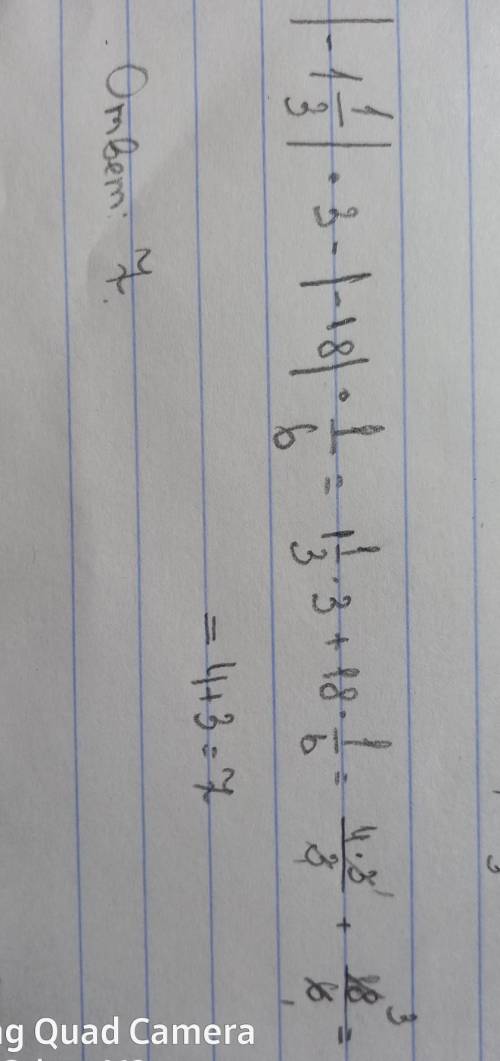 |-1 1/3| · 3 - |-18| · 1/6 = 1 1/3 · 3 + 18 · 1/6 = 4·3¹/3 + 18³/6₁ =
= 4+3=7
Ответ: 7.
ng Quad Camera